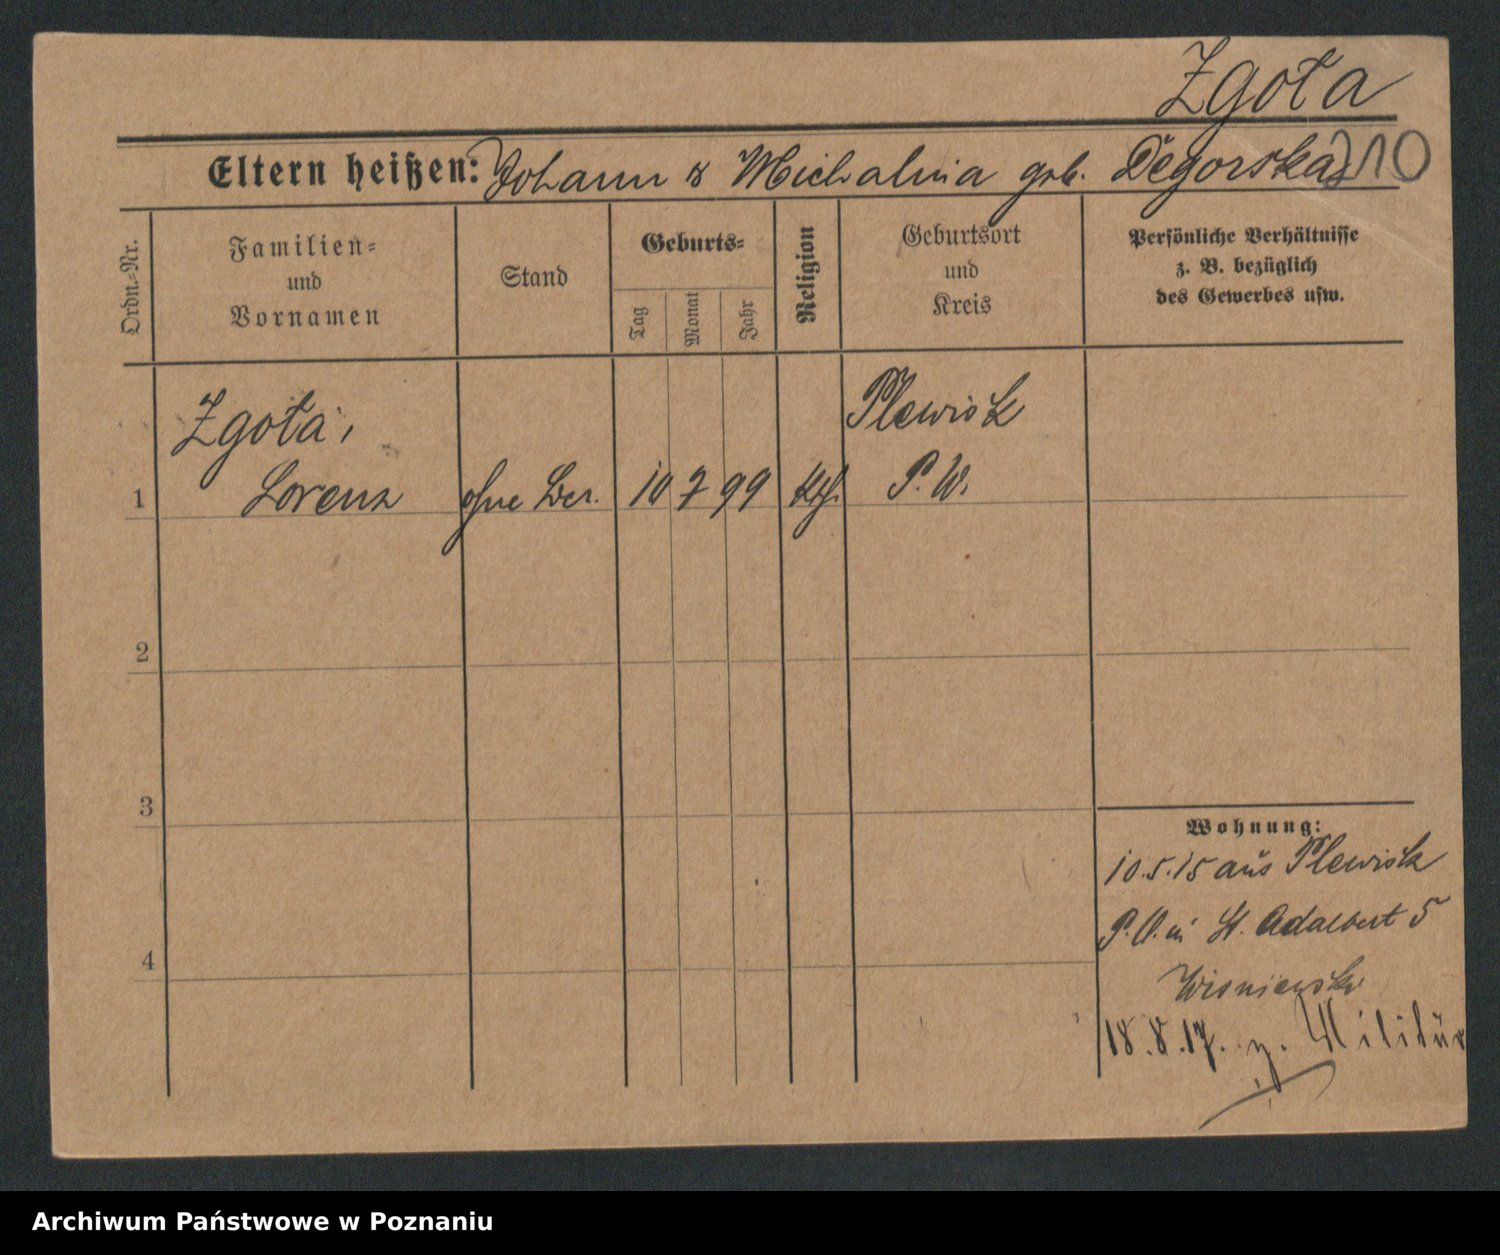 Zgoła
Eltern heißen: Johann & Michalina geb. Degorska
210
Ordn.-Nr.
Familien-
und
Vornamen
Stand
Geburts-
Tag
Monat
Jahr
Religion
Geburtsort
und
Kreis
Persönliche Verhältnisse
z. B. bezüglich
des Gewerbes usw.
Zgoła,
Plewisk
1 Lorenz ohne 10 7 99 Kth. P. W.
2
3
4
Wohnung:
10.5.15 aus Plewisk
P. St. Adalbert 5
Wisniewski
18.8.17. z. Militär
Archiwum Państwowe w Poznaniu